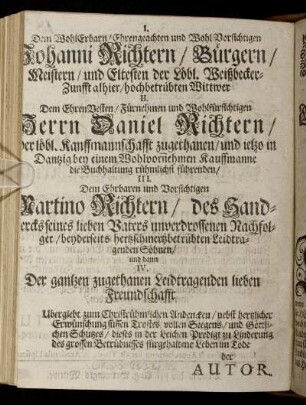 I.
Dem WohlErbarn/ Ehrengeachten und Wohl Vorsichtigen
Johanni Richtern/ Bürgern/
Meistern/ und Eltesten der Löbl. Weißbecker-
Zunfft alhier/ hochbetrübten Wittwer
II.
Dem EhrenVesten/ Fürnehmen und Wohlfürsichtigen
Herrn Daniel Richtern/
der löbl. Kauffmannschafft zugethanen/ und ietzo in
Dantzig bey einem Wohlvornehmen Kauffmanne
die Buchhaltung rühmlichst führenden/
III.
Dem Ehrbaren und Vorsichtigen
Martino Richtern/ des Hand-
wercks seines lieben Vaters unverdrossenen Nachfol-
ger/ beyderseits hertzschmertzbetrübten Leidtra-
genden Söhnen/
und dann
IV.
Der gantzen zugethanen Leidtragenden lieben
Freundschafft
Übergiebt zum Christrühmlichen Andencken/ nebst hertzlicher
Erwünschung süssen Trostes, vollen Seegens/ und Göttli-
chen Schutzes/ dieses in der Leichen Predigt zu Linderung
des grossen Betrübnisses fürgehaltene Leben im Tode
der
AUTOR.